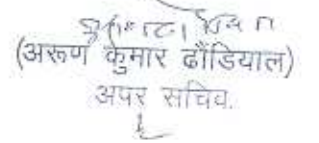 (अरूण कुमार ढौंडियाल)
अपर सचिव.